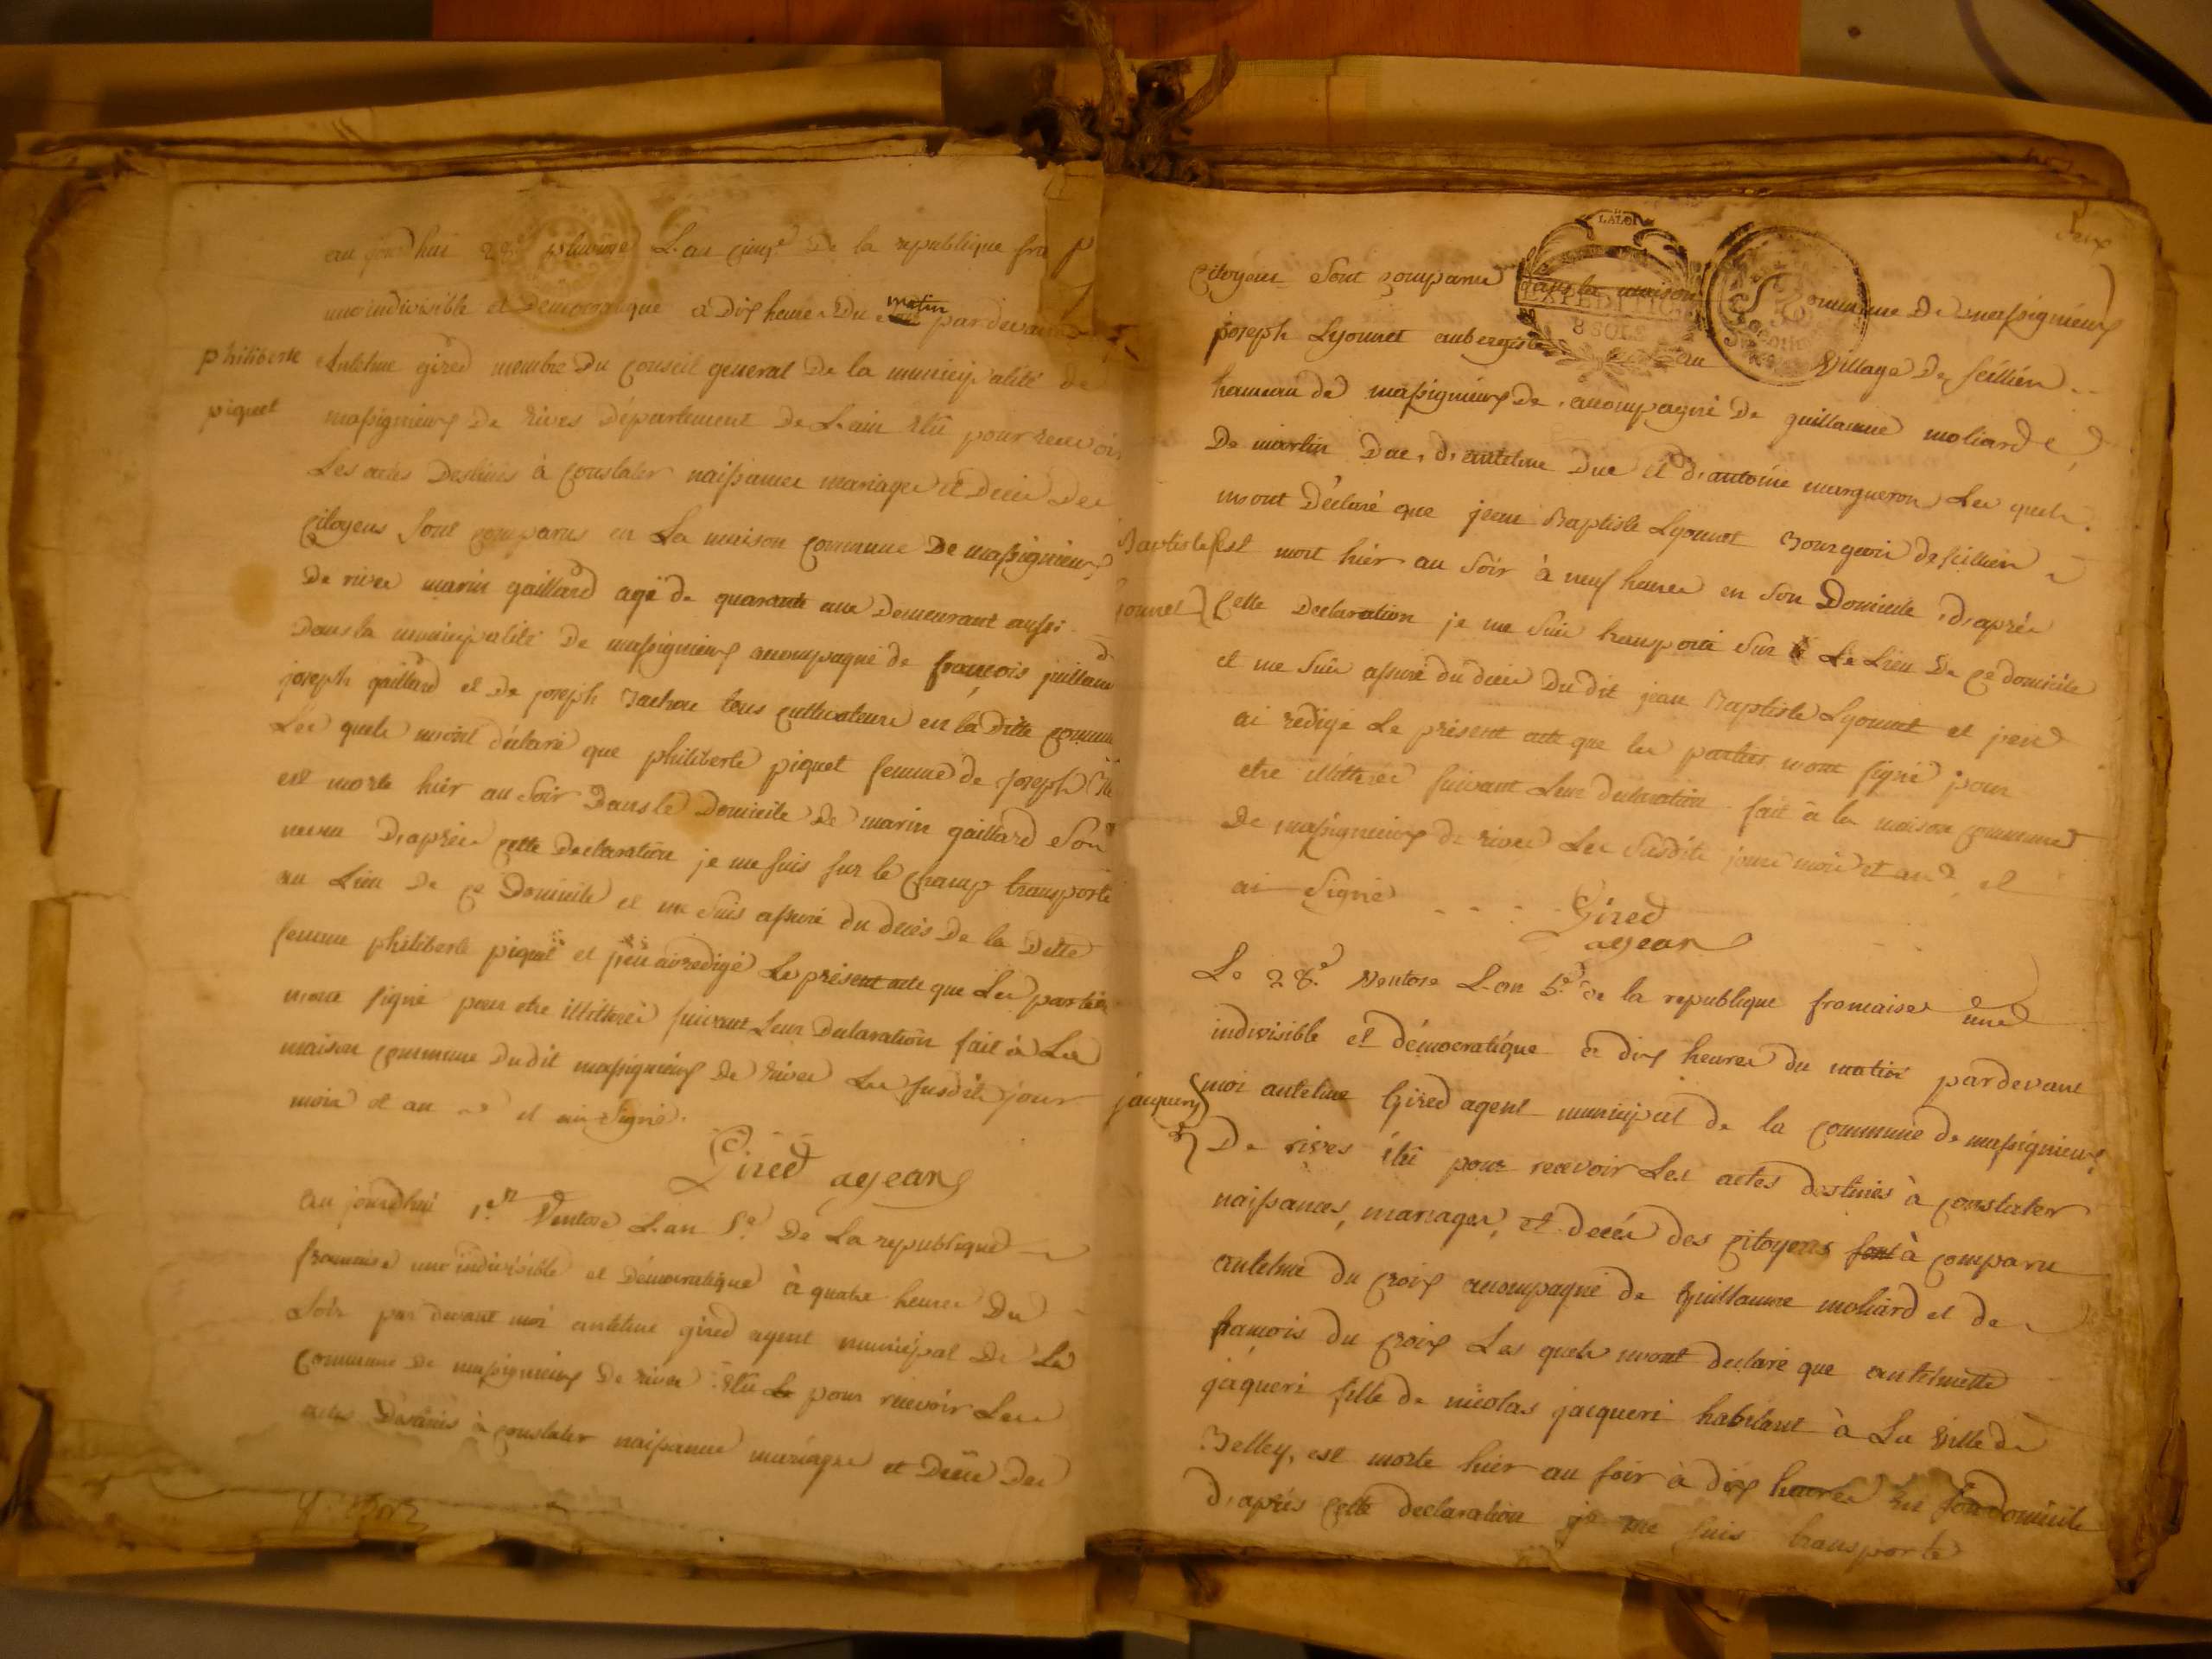 au jourdhui pluviose L'an cinq.e De la republique fra
une indivisible et Democratique a Dix heures Du matin pardevant
philiberte
piquet
Antelme gired membre Du Conseil general De la municipalité de
massignieux De rives Département De L'ain Elû pour recevoir
Les actes Destinés à Constater naissances mariages et Décés Des
Citoyens sont comparus en La maison commune De massignieux
De rives marin gaillard agé de quarante ans Demeurant aussi
Dans la municipalité De massignieux acompagné de françois juilland
joseph gaillard et De joseph tous cultivateurs en la ditte commune
Les quels m'ont déclaré que philiberte piquet femme de joseph
est morte hier au soir Dans le Domicile De marin gaillard son
neveu D'aprés cette Declaration je me suis sur le champ transporté
au Lieu De ce Domicile et me suis assuré du décés De la Ditte
femme philiberte piquet et j'en ai redigé Le présent acte que Les parties
n'ont signé pour etre illitteré suivant Leur Declaration fait à La
maison commune Du dit massignieux De rives Les susdits jour
mois et an et ai signé.
Gired agean
au jourdhui 1.er Ventose L'an 5.e De La republique
francaise une indivisible et Démocratique à quatre heures Du
Soir par devant moi antelme gired agent municipal De La
Commune De massignieux De rives Elû pour recevoir Les
actes Destinés à constater naissances mariages et Décés Des
Citoyens sont comparu dans la maison commune De massignieux
joseph Lyonnet aubergiste au Village De Seillien
hameau de massignieux De acompagné De guillaume moliard
De martin Duc, d'antelme Duc et d'antoine margueron Les quels
m'ont Déclaré que jean Baptiste Lyonnet Bourgeois de seillien
Baptiste
est mort hier au soir à neuf heures en son Domicile, d'aprés
ionnet
Cette Declaration je me suis transporté sur Le Lieu De ce domicile
et me suis assuré du décés Du dit jean Baptiste Lyonnet et j'en
ai redigé Le présent acte que les parties n'ont signé pour
etre illitterés suivant Leur declaration fait à la maison commune
De massignieux de rives Les susdits jours mois et an et
ai Signé
Gired
agean
Le 28.e Ventose L'an 5.e de la republique francaises une
indivisible et démocratique à dix heures du matin pardevant
jaquery
moi antelme Gired agent municipal de la commune de massignieux
De rives élû pour recevoir Les actes destinés à constater
naissances, mariages, et decés des citoyens sont à comparu
antelme du croix acompagné de Guillaume moliard et de
françois du croix Les quels m'ont declaré que antelmette
jaqueri fille de nicolas jacqueri habitant à La Ville de
Belley, est morte hier au soir à dix heures en son domicile
D'aprés cette declaration je me suis transporté
LA LOI
EXPEDITION
8 SOLS